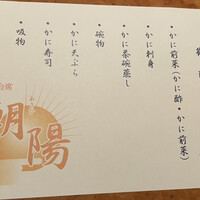 ・かに前菜(かに酢・かに前菜)
・かに刺身
・かに茶碗蒸し
・碗物
・かに天ぷら
・かに寿司
・吸物
会席
朝陽